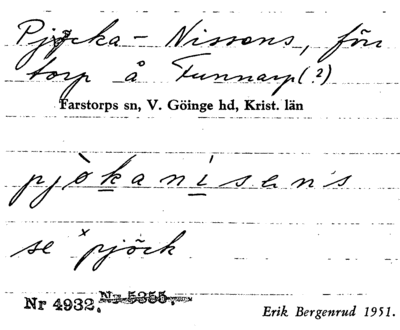 Pjöcka-Nissons, förr
torp å Funnarp(?)
Farstorps sn, V. Göinge hd, Krist. län
pjòkanisens
se ˣpjöck
Nr 4932. Nr 5355.
Erik Bergenrud 1951.